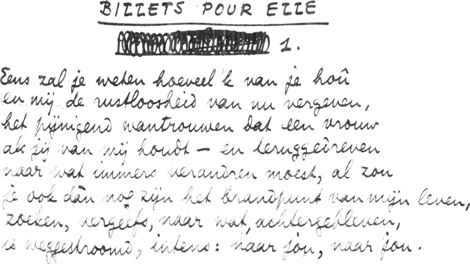 BILLETS POUR ELLE
1.
Eens zal je weten hoeveel 'k van je hoû
en mij de rustloosheid van nu vergeven,
het pijnigend wantrouwen dat een vrouw
als jij van mij houdt — en teruggedreven
naar wat immers verandren moest, al zou
je ook dàn nog zijn het brandpunt van mijn leven,
zoeken, vergeefs, naar wat, achtergebleven,
is weggestroomd, intens: naar jou, naar jou.